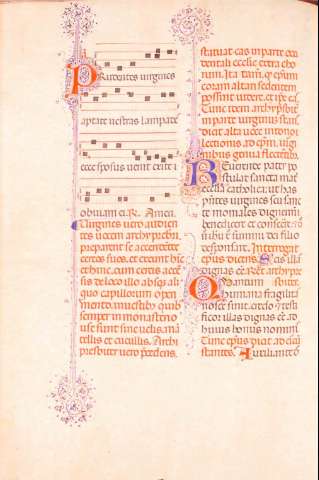 Prudentes virgines
aptate vestras lampade
ecce sposus venit exite i
obuiam ei. R. Amen.
Uirgines uero audien
tes uocem archipresbi,
preparent se accendentes
cereos suos, et exeunt bic
cum cereis
de loco illo absq ali
quo capillorum oper
mento, mitris
semper in monasterio
use sunt sine uelis, man
tellis et cucullis. Archi
presbiter uero precedens,
statuat eas in parte occi
dentali ecclie extra cho
rum. Ita tam q epium
coram altari sedentem
possint uidere, et ipse eas
Tunc idem archipresbit
in parte uirginum stans
dicit alta uoce in tono
lectionis, ad epium, uirgi
nibus genua flectentib.
Reuerende pater po
stulat sancta mat
ecclia catholica, ut has
pntes uirgines seu sanc
te moniales dignemini
benedicere et consecrare
sponsare. Interrogat
epus dicens. Scis illas
dignas esse. Respondet archipresbiter
Quantum
humana fragilitas
nosce sinit, credo et testi
ficor illas dignas esse ad
huius honus nomini
Tunc epus dicat ad circ
stantes. Auxiliante